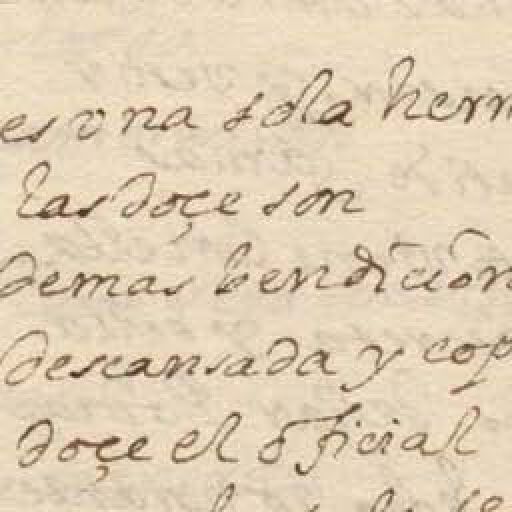 es vna sola herm
las doçe son
demas bendición
descansada y cop
doçe el official